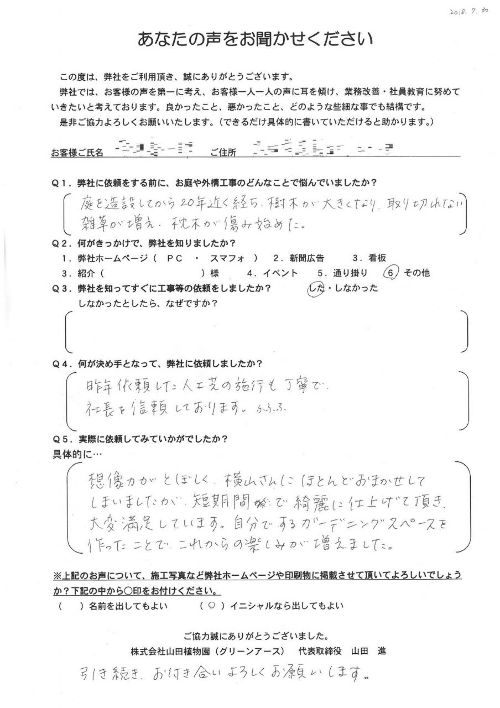 2018.7.30
あなたの声をお聞かせください
この度は、弊社をご利用頂き、誠にありがとうございます。
弊社では、お客様の声を第一に考え、お客様一人一人の声に耳を傾け、業務改善・社員教育に努めて
いきたいと考えております。良かったこと、悪かったこと、どのような些細な事でも結構です。
是非ご協力よろしくお願いいたします。（できるだけ具体的に書いていただけると助かります。）
お客様ご氏名 ご住所
Q1．弊社に依頼をする前に、お庭や外構工事のどんなことで悩んでいましたか？
庭を造設してから20年近く経ち、樹木が大きくなり、取り切れない
雑草が増え、枕木が傷み始めた。
Q2．何がきっかけで、弊社を知りましたか？
1．弊社ホームページ（ PC ・ スマフォ ） 2．新聞広告 3．看板
3．紹介（ ）様 4．イベント 5．通り掛り 6 その他
Q3．弊社を知ってすぐに工事等の依頼をしましたか？ した・しなかった
しなかったとしたら、なぜですか？
Q4．何が決め手となって、弊社に依頼しましたか？
昨年依頼した人工芝の施行も丁寧で、
社長を信頼しております。
Q5．実際に依頼してみていかがでしたか？
具体的に…
想像力がとぼしく、横山さんにほとんどおまかせして
しまいましたが、短期間で綺麗に仕上げて頂き、
大変満足しています。自分でするガーデニングスペースを
作ったことで、これからの楽しみが増えました。
※上記のお声について、施工写真など弊社ホームページや印刷物に掲載させて頂いてよろしいでしょう
か？下記の中から○印をお付けください。
（ ）名前を出してもよい （ ○ ）イニシャルなら出してもよい
ご協力誠にありがとうございました。
株式会社山田植物園（グリーンアース） 代表取締役 山田 進
引き続き、お付き合いよろしくお願いします。